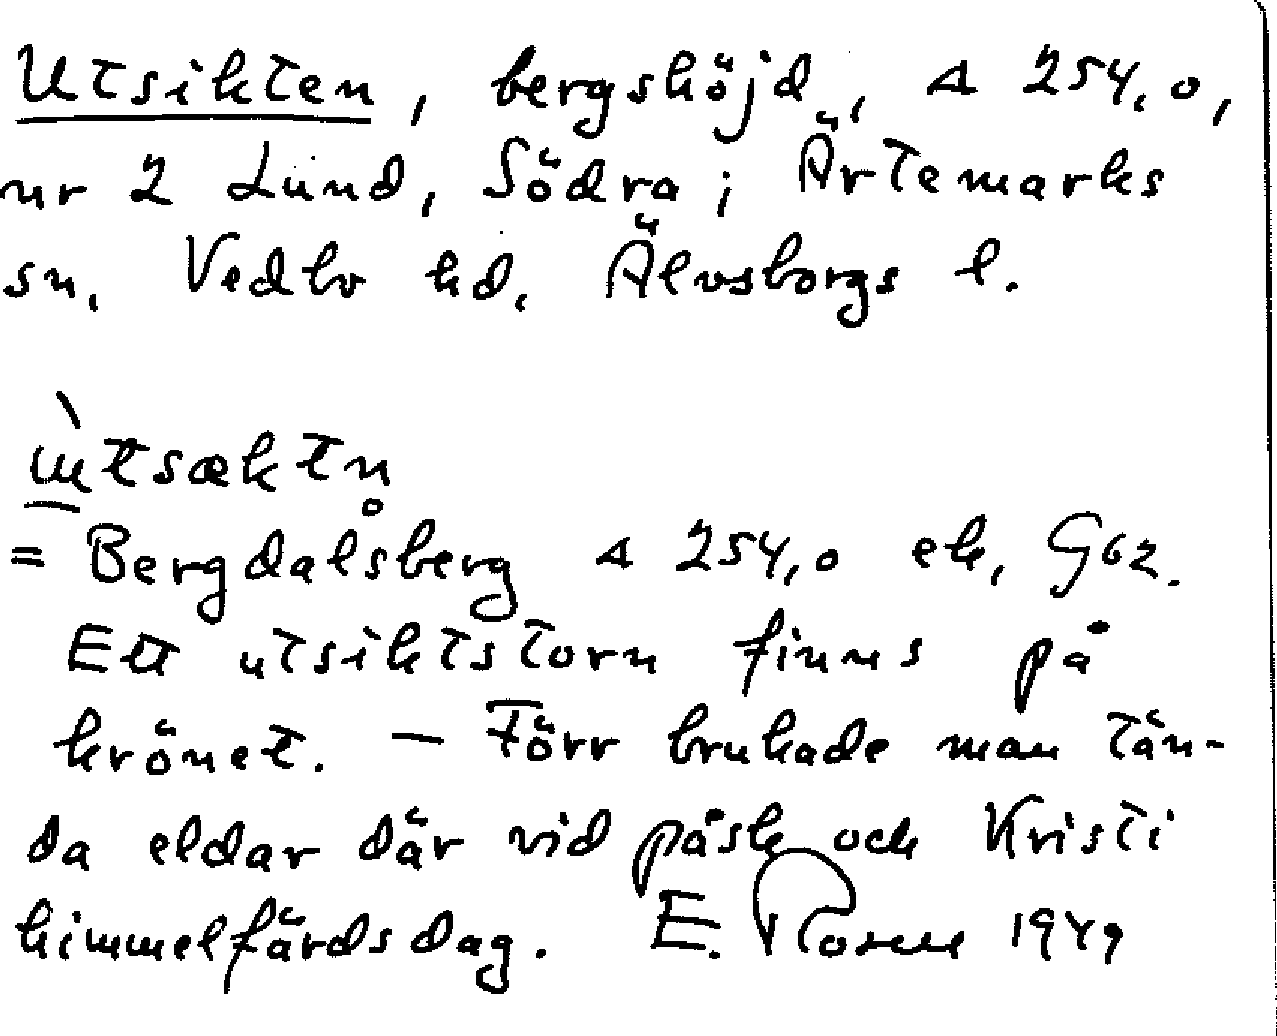 Utsikten, bergshöjd, Δ 254,0,
nr 2 Lund, Södra; Ärtemarks
sn, Vedbo hd, Älvsborgs l.
ùtsæktn̥
= Bergdalsberg Δ 254,0 ek,
Ett utsiktstorn finns på
krönet. — Förr brukade man tän-
da eldar där vid påsk och Kristi
himmelfärdsdag. E. Rosell 1949